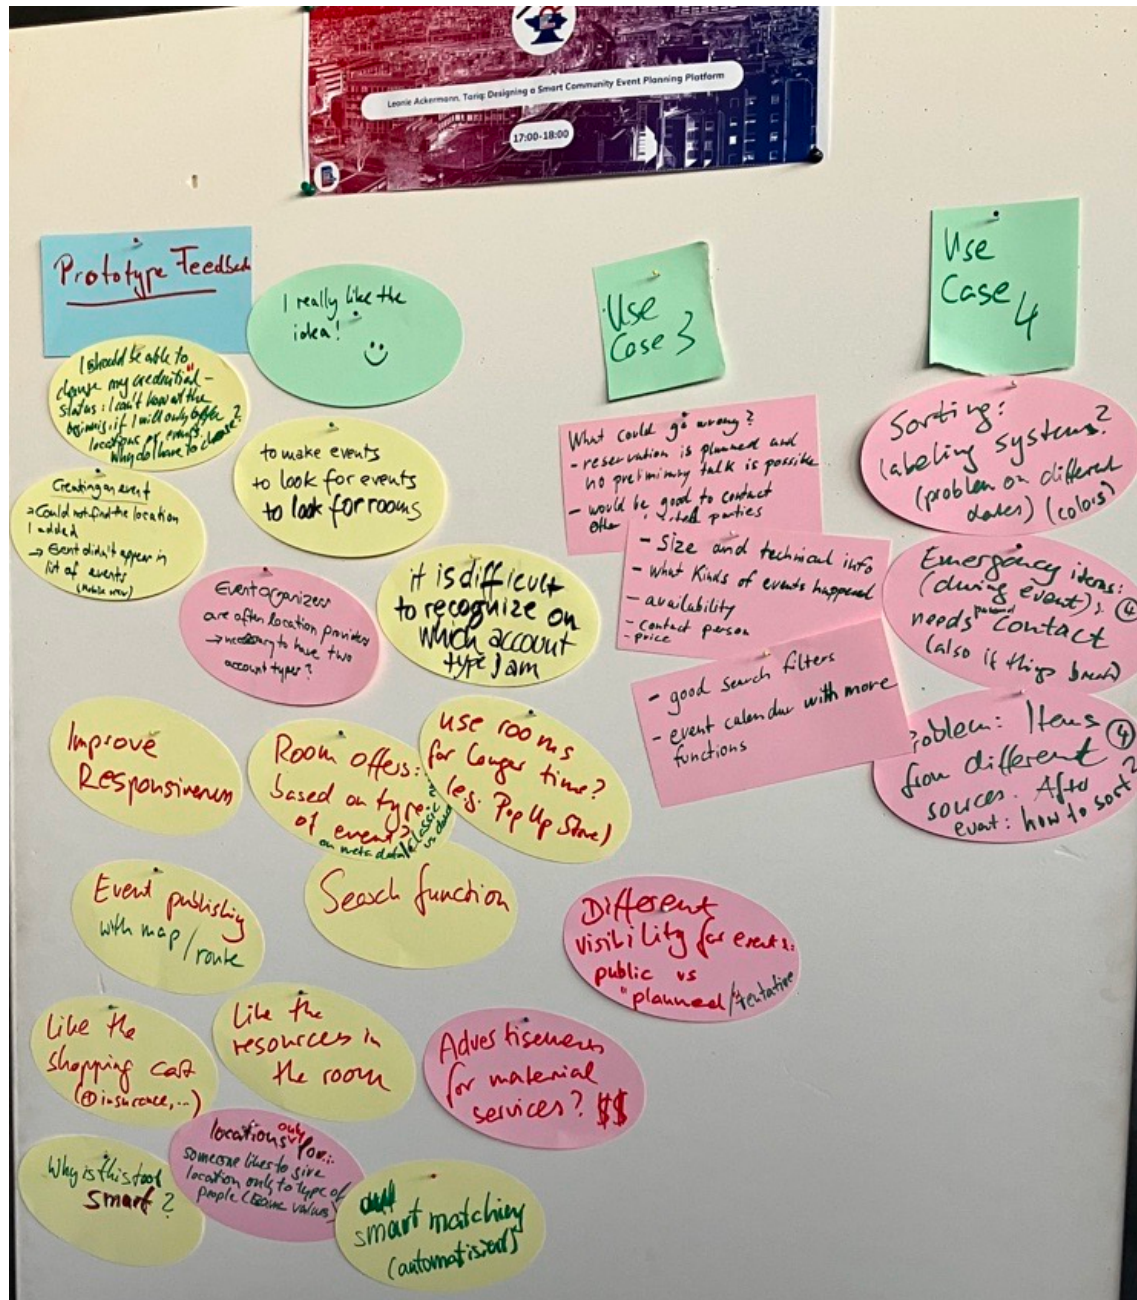 Leonie Ackermann, Tariq: Designing a Smart Community Event Planning Platform
17:00-18:00
Prototype Feedback
I really like the
idea!
I should be able to
change my credential-
status: I can't know at the
beginning if I will only offer
locations or events.
Why do I have to choose?
to make events
to look for events
to look for rooms
Creating an event
→ Could not find the location
I added
→ Event didn't appear in
list of events
(Mobile view)
Event organizers
are often location providers
→ necessary to have two
account types?
it is difficult
to recognize on
which account
type I am
Improve
Responsiveness
Room offers:
based on type
of event?
on meta data/classic
vs
use rooms
for longer time?
(eg. PopUp Store)
Event publishing
with map/route
Search function
Like the
shopping cart
(+ insurance,...)
Like the
resources in
the room
Advertisements
for material
services? $$
Different
visibility for events:
public vs
"planned/tentative
Why is this tool
smart?
locations only for:
someone likes to give
location only to type of
people (same values)
smart matching
(automatisied)
Use
Case 3
What could go wrong?
- reservation is planned and
no preliminary talk is possible
- would be good to contact
other parties
- Size and technical info
- what kinds of events happened
- availability
- contact person
- price
- good search filters
- event calendar with more
functions
Use
Case 4
Sorting:
labeling systems?
(problem on different
dates) (colors)
Emergency items:
(during event): 4
needs contact
(also if things break)
Problem: Items 4
from different
sources. After
event: how to sort?